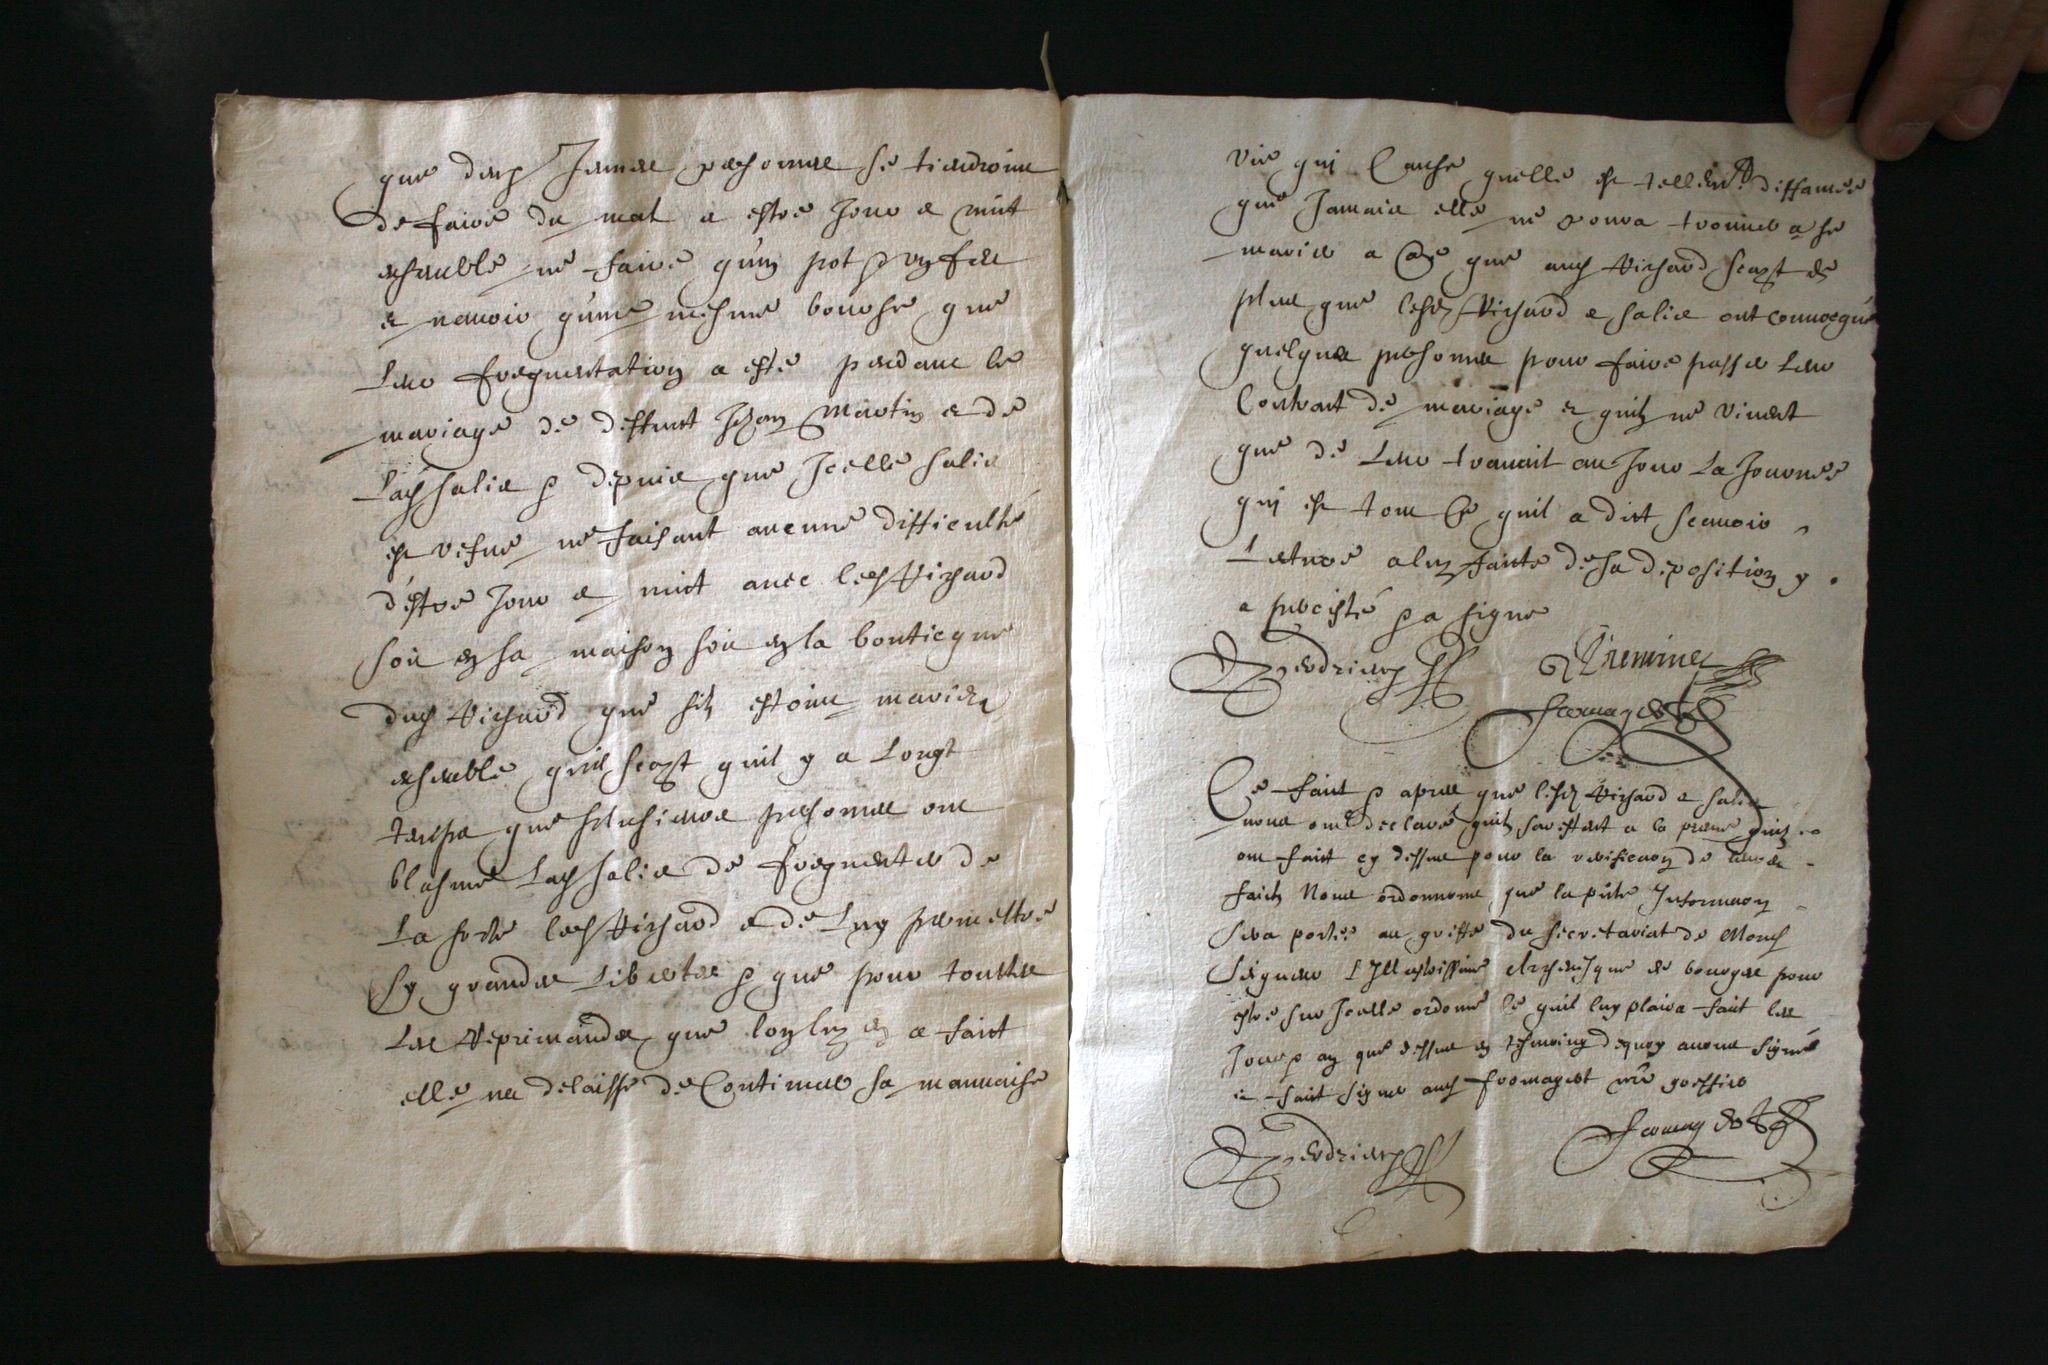 que deux Jeunes personnes se tiendroint
de faire du mal a estre Jour et nuit
ensemble ne faire qu'un pot & un feu
et n'avoir qu'une mesme bourse que
Leur frequentation a esté pendant le
mariage de deffunct Jean Martin et de
Lad salie & depuis que Icelle salie
est vefue ne faisant aucune difficulté
d'estre Jour et nuit avec led Richard
soit en sa maison soit en la bouticque
dud Richard que s'ilz estoint mariez
ensemble qu'il scayt qu'il y a Longt
temps que plusieurs personnes ont
blasmé Lad salie de frequenter de
La sorte led Richard et de Luy permettre
sy grandes Libertes & que pour touttes
Les Reprimandes que lon luy en a faict
elle na delaissé de Continuer sa mauvaise
vie qui Cause quelle est tellemt diffamée
que Jamais elle ne poura trouver a se
marier a Ce que aud Richard scayt de
plus que lesd Richard et salie ont convocqué
quelques personnes pour faire passer Leur
Contract de mariage et quilz ne vivent
que de Leur travail au Jour La Journée
qui est tout Ce quil a dict scavoir
Lecture a luy faicte de sa deposition y
a percisté & a signé
Fromaget
Ce faict & apres que lesd Richard et salie
nous ont declaré quilz sarestent a la preuve quilz
ont faict cy dessus pour la verificaon de leurs
faictz Nous ordonnons que la pnte Informaon
sera portée au greffe du secretariat de Monsr
seigneur L'Illustrissime Archevesque de bourges pour
estre sur Icelle ordonné ce quil luy plaira faict les
Jour & an que dessus en tesmoing dequoy avons signé
et faict signer aud fromaget nre greffier
Fromaget